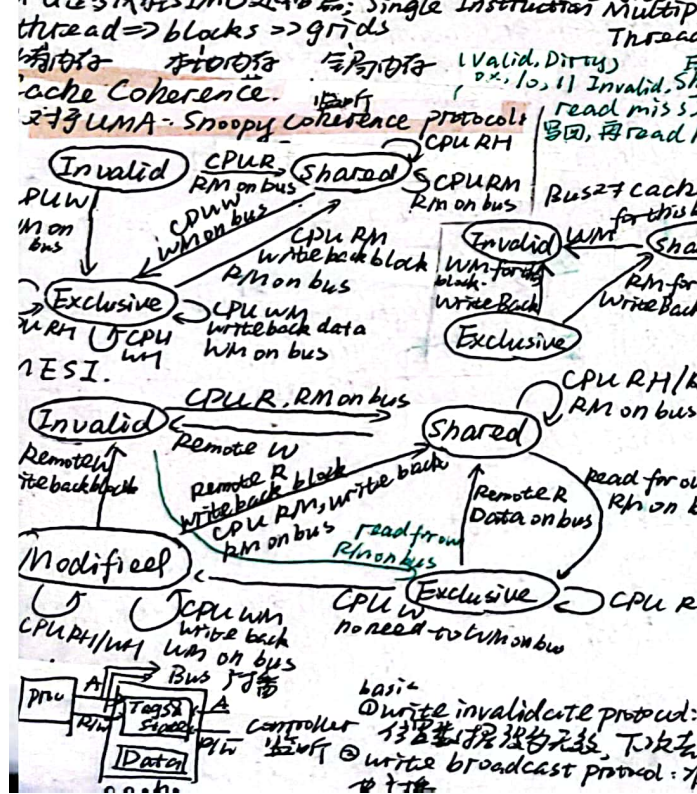 Single Instruction Multip
thread => blocks => grids
Thread
本地内存 全局内存 (Valid, Dirty)
Invalid, Sh
Cache Coherence.
监听
对于UMA - Snoopy Coherence protocols
read miss
写回, 再read
Invalid
CPU R
RM on bus
Shared
CPU RH
CPU RM
RM on bus
PU W
WM on
bus
CPU W
WM on bus
CPU RM
write back block
RM on bus
Exclusive
PU RH
CPU
WH
CPU WM
write back data
WM on bus
Bus对Cach
for this b
Invalid
WM
Sha
WM for this
block.
Write Back
RM for
Write Back
Exclusive
MESI.
Invalid
CPU R, RM on bus
Remote W
Shared
CPU RH/R
RM on bus
Remote W
ite back block
Remote R
write back block
CPU RM, write back
RM on bus
Remote R
Data on bus
Read for ow
RM on b
read from
RM on bus
Modified
CPU W
no need to WM on bus
Exclusive
CPU R
CPU RH/WH
CPU WM
write back
WM on bus
Bus
A
R/W
Tags&
State
Data
A
R/W
Controller
监听
basic
① write invalidate protocol:
② write broadcast protocol: